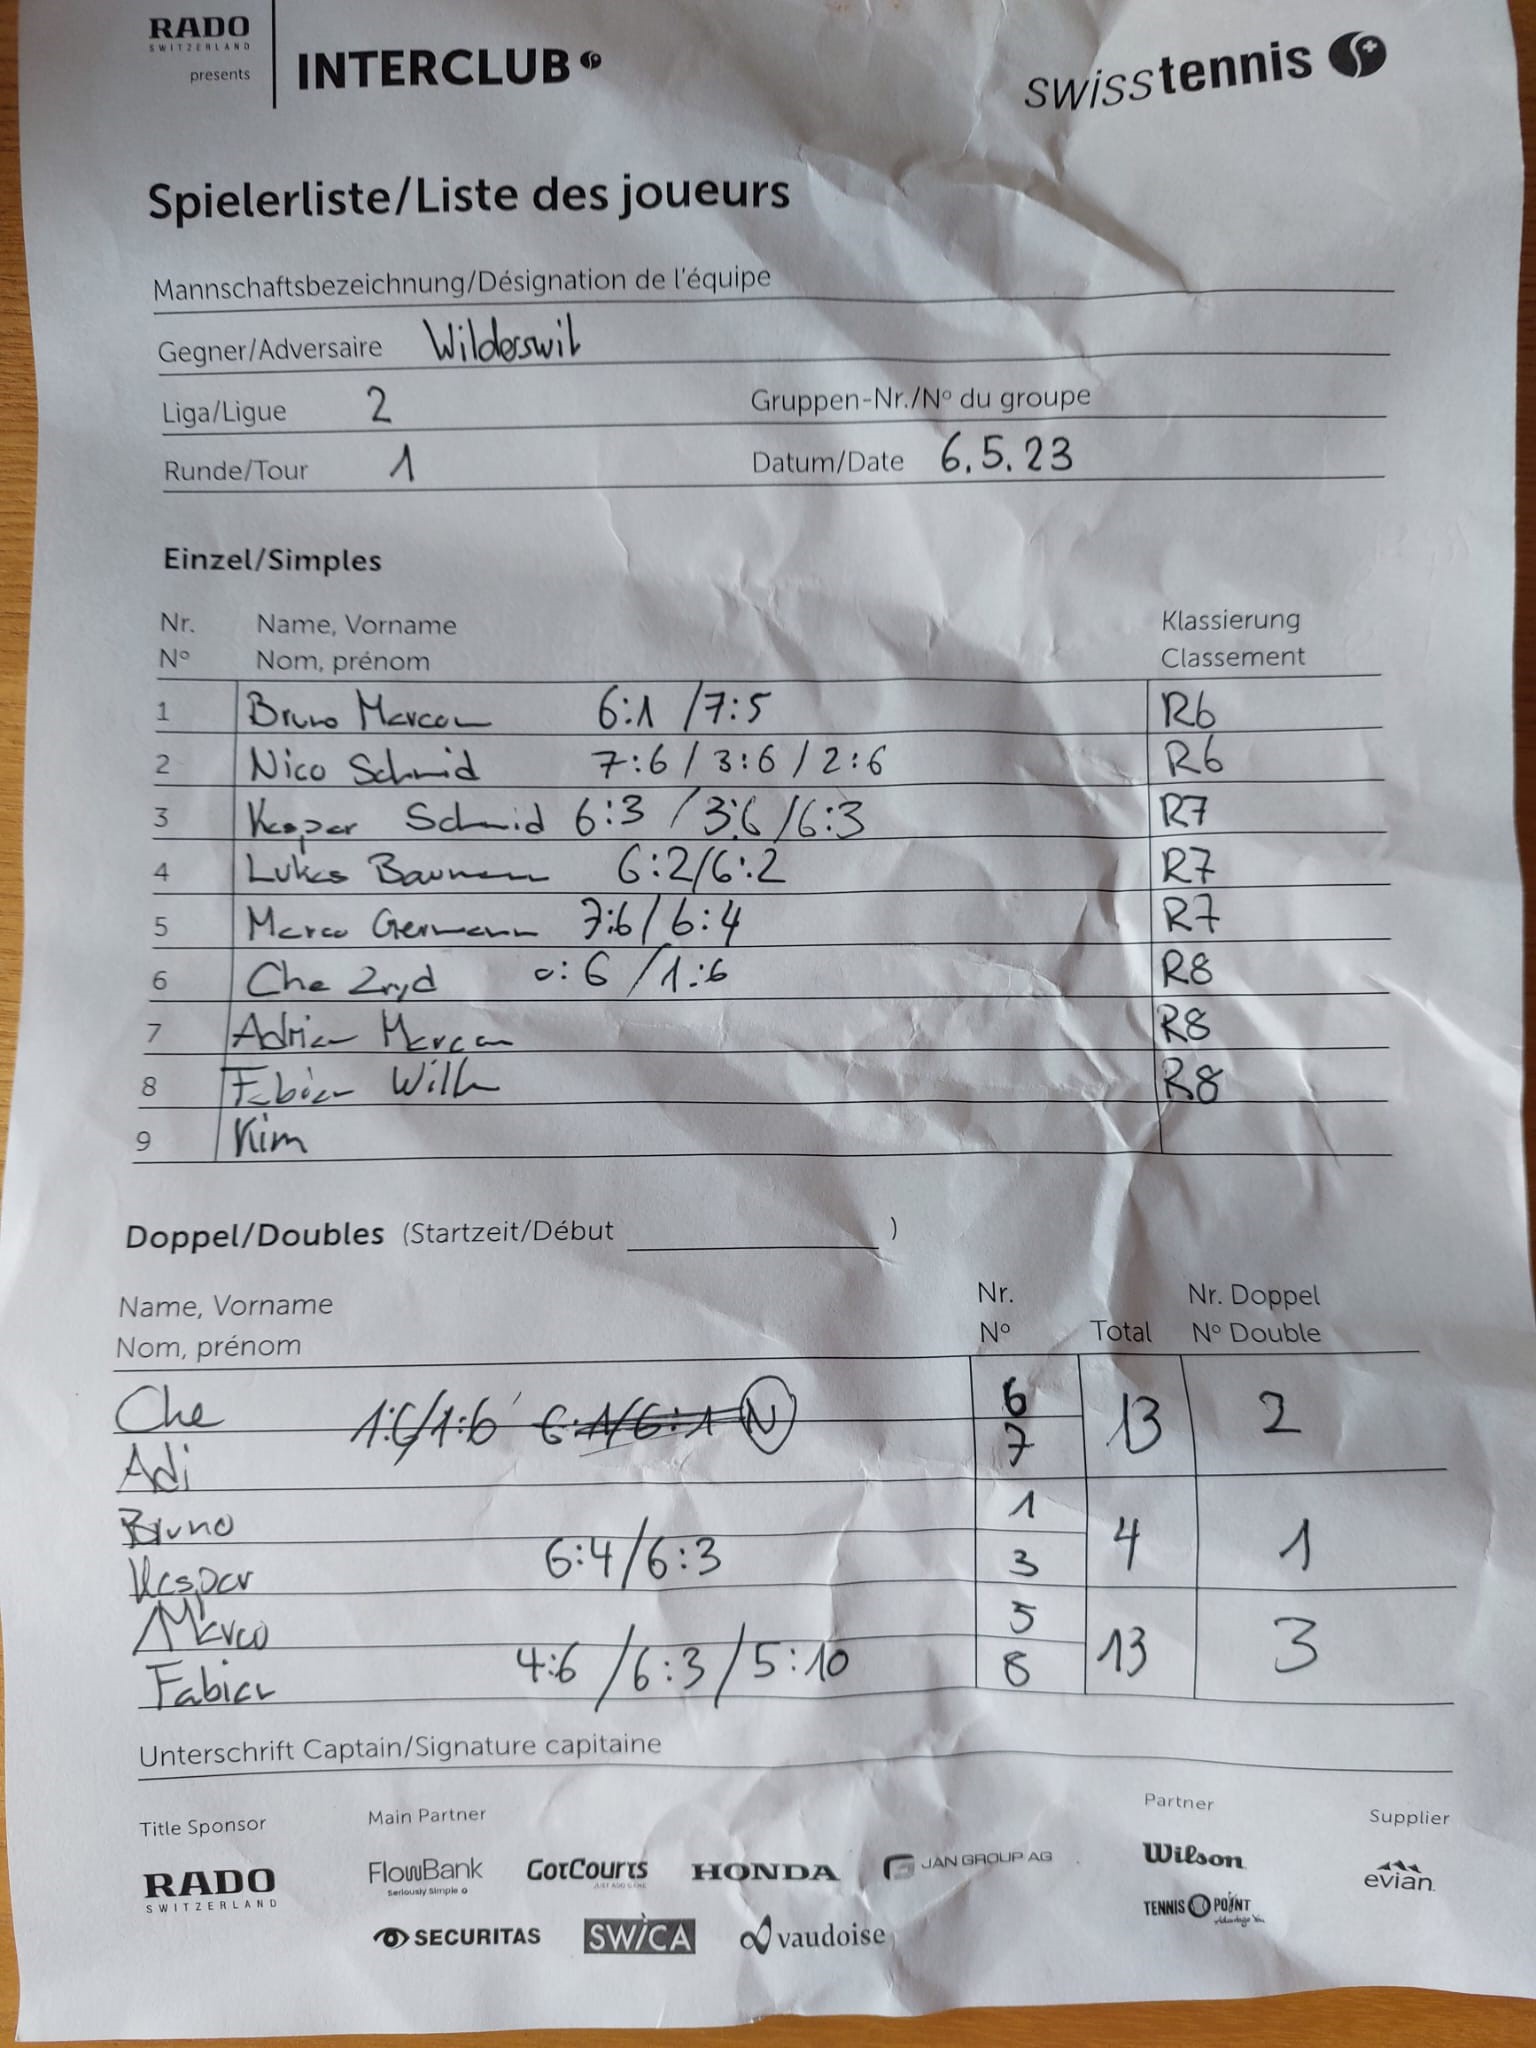 RADO
SWITZERLAND
presents
INTERCLUB
swisstennis
Spielerliste/Liste des joueurs
Mannschaftsbezeichnung/Désignation de l'équipe
Gegner/Adversaire Wilderswil
Liga/Ligue 2 Gruppen-Nr./Nº du groupe
Runde/Tour 1 Datum/Date 6.5.23
Einzel/Simples
Nr. Name, Vorname Klassierung
Nº Nom, prénom Classement
1 Bruno Marcon 6:1 /7:5 R6
2 Nico Schmid 7:6 / 3:6 / 2:6 R6
3 Kaspar Schmid 6:3 / 3:6 /6:3 R7
4 Lukas Baumann 6:2/6:2 R7
5 Marco Germann 7:6/ 6:4 R7
6 Che Zryd 0:6 /1:6 R8
7 Adrian Marcon R8
8 Fabian R8
9 Kim
Doppel/Doubles (Startzeit/Début )
Name, Vorname Nr. Nr. Doppel
Nom, prénom Nº Total Nº Double
Che 1:6/1:6 6:1/6:1 N 6 13 2
Adi 7
Bruno 1 4 1
Kaspar 6:4/6:3 3
Marco 5 13 3
Fabian 4:6 /6:3/5:10 8
Unterschrift Captain/Signature capitaine
Title Sponsor Main Partner Partner Supplier
RADO
SWITZERLAND
FlowBank
Seriously Simple
GotCourts
HONDA
JAN GROUP AG
Wilson
evian
TENNIS POINT
SECURITAS
SWICA
vaudoise